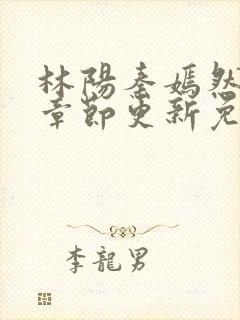 林陽秦嫣然
章節更新免
李龍男